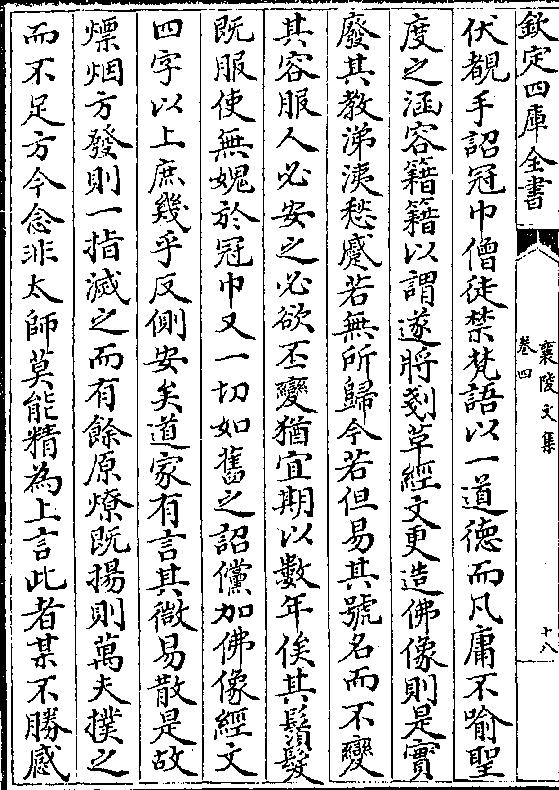 欽定四庫全書
襄陵文集
卷四
十八
伏覩手詔冠巾僧徒禁梵語以一道德而凡庸不喻聖
度之涵容籍籍以謂遂將剗草經文更造佛像則是實
廢其教涕洟愁蹙若無所歸今若但易其號名而不變
其容服人必安之必欲丕變猶宜期以數年俟其鬚髮
既服使無媿於冠巾又一切如舊之詔儻加佛像經文
四字以上庶幾乎反側安矣道家有言其微易散是故
熛烟方發則一指滅之而有餘原燎既揚則萬夫撲之
而不足方今念非太師莫能精為上言此者某不勝感